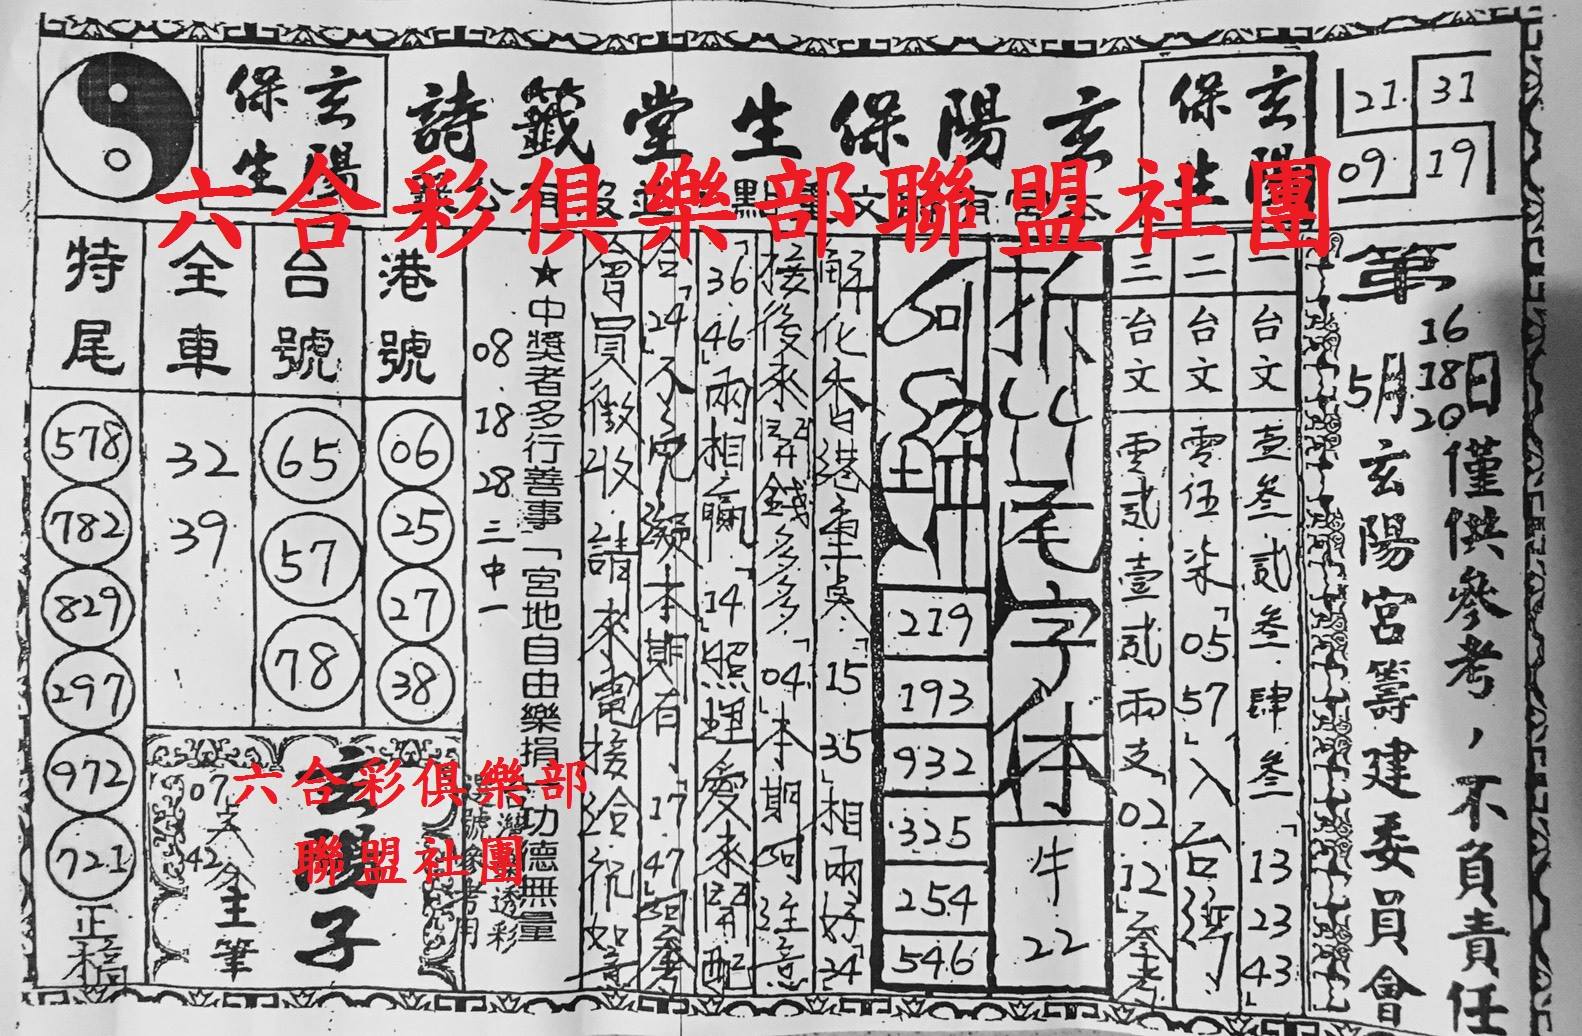 玄陽保生堂籤詩
玄陽
保生
玄陽
保生
21 31
09 19
六合彩俱樂部聯盟社團
第
16
18
20
5月
日僅供參考，不負責任
玄陽宮籌建委員會
一台文 壹叁貳叁.肆叁「13 23 43」
二台文 零伍柒「05 57」入台
三台文 零貳.壹貳兩支「02 12」
字体
牛
22
219
193
932
325
254
546
解化香港「15 35」相兩好「34
接後來開錢多多.「04」本期可注意
「36.46」兩相贏「14」照理愛來開配
合「24」不 本期有「17 47」
會員徵收.請來電接洽.祝如意
★中獎者多行善事「宮地自由樂捐」功德無量
08.18.28三中一
港號
06
25
27
38
台號
65
57
78
全車
32
39
特尾
578
782
829
297
972
721
正稿
玄陽子
主筆
07
42
六合彩俱樂部
聯盟社團